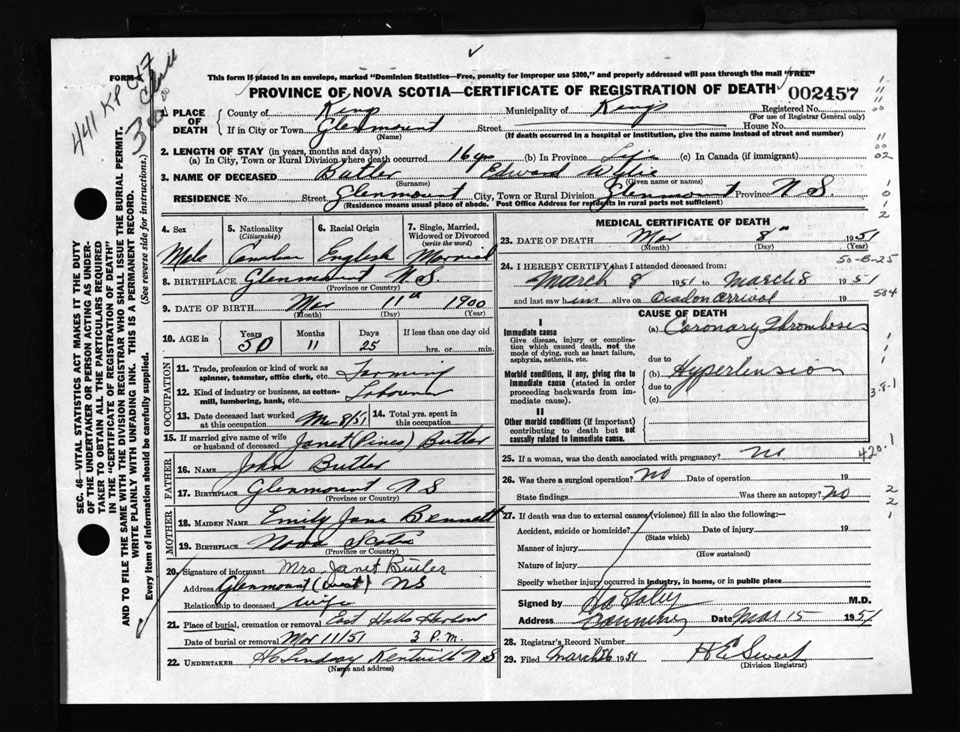 This form if placed in an envelope, marked "Dominion Statistics—Free, penalty for improper use $300," and properly addressed will pass through the mail "FREE"
FORM
PROVINCE OF NOVA SCOTIA—CERTIFICATE OF REGISTRATION OF DEATH 002457
441 KP
1. PLACE OF DEATH
County of Kings Municipality of Kings Registered No.
(For use of Registrar General only)
If in City or Town Glenmount Street House No.
(Name) (If death occurred in a hospital or institution, give the name instead of street and number)
2. LENGTH OF STAY (in years, months and days)
(a) In City, Town or Rural Division where death occurred 16 yrs (b) In Province Life (c) In Canada (if immigrant)
3. NAME OF DECEASED Butler Edward Wylie
(Surname) (Given name or names)
RESIDENCE No. Street Glenmount City, Town or Rural Division Glenmount Province N.S.
(Residence means usual place of abode. Post Office Address for residents in rural parts not sufficient)
4. Sex 5. Nationality (Citizenship) 6. Racial Origin 7. Single, Married, Widowed or Divorced (write the word)
Male Canadian English Married
8. BIRTHPLACE Glenmount N.S.
(Province or Country)
9. DATE OF BIRTH Mar 11th 1900
(Month) (Day) (Year)
10. AGE in Years Months Days If less than one day old
50 11 25 hrs. or min.
OCCUPATION
11. Trade, profession or kind of work as spinner, teamster, office clerk, etc. Farming
12. Kind of industry or business, as cotton-mill, lumbering, bank, etc. Labourer
13. Date deceased last worked at this occupation Mar 8/51 14. Total yrs. spent in this occupation
15. If married give name of wife or husband of deceased Janet (Pines) Butler
FATHER
16. NAME John Butler
17. BIRTHPLACE Glenmount N S
(Province or Country)
MOTHER
18. MAIDEN NAME Emily Jane Bennett
19. BIRTHPLACE Nova Scotia
(Province or Country)
20. Signature of informant Mrs. Janet Butler
Address Glenmount (West) NS
Relationship to deceased wife
21. Place of burial, cremation or removal East Halls Harbour
Date of burial or removal Mar 11/51 3 P.M.
22. UNDERTAKER H Lindsay Kentville N S
(Name and address)
MEDICAL CERTIFICATE OF DEATH
23. DATE OF DEATH Mar 8th 1951
(Month) (Day) (Year)
50-B-25
24. I HEREBY CERTIFY that I attended deceased from:
March 8 1951 to March 8 1951
and last saw him alive on Dead on arrival 19 504
CAUSE OF DEATH
I
Immediate cause
Give disease, injury or complication which caused death, not the mode of dying, such as heart failure, asphyxia, asthenia, etc.
(a) Coronary Thrombosis
due to
Morbid conditions, if any, giving rise to immediate cause (stated in order proceeding backwards from immediate cause).
(b) Hypertension
due to
(c)
II
Other morbid conditions (if important) contributing to death but not causally related to immediate cause.
25. If a woman, was the death associated with pregnancy? no 420.1
26. Was there a surgical operation? no Date of operation 19
State findings Was there an autopsy? no
27. If death was due to external causes (violence) fill in also the following:—
Accident, suicide or homicide? Date of injury 19
(State which)
Manner of injury
(How sustained)
Nature of injury
Specify whether injury occurred in industry, in home, or in public place
Signed by M.D.
Address Date Mar 15 1951
28. Registrar's Record Number
29. Filed March 26 1951 H E Sweet
(Division Registrar)
SEC. 46—VITAL STATISTICS ACT MAKES IT THE DUTY OF THE UNDERTAKER OR PERSON ACTING AS UNDERTAKER TO OBTAIN ALL THE PARTICULARS REQUIRED IN THE "CERTIFICATE OF REGISTRATION OF DEATH" AND TO FILE THE SAME WITH THE DIVISION REGISTRAR WHO SHALL ISSUE THE BURIAL PERMIT.
WRITE PLAINLY WITH UNFADING INK. THIS IS A PERMANENT RECORD.
Every item of information should be carefully supplied. (See reverse side for instructions.)